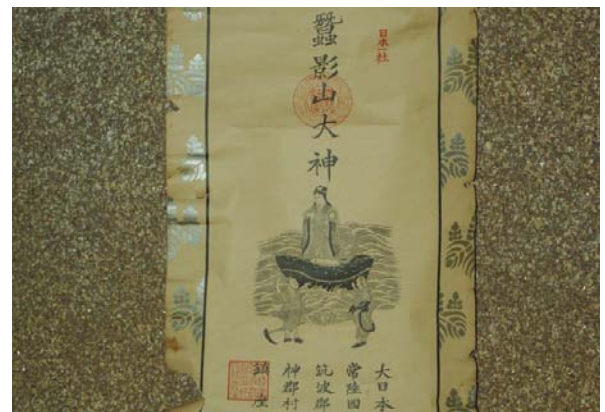 日本一社
蠶影山大神
大日本
常陸國
筑波郡
神郡村
鎮座